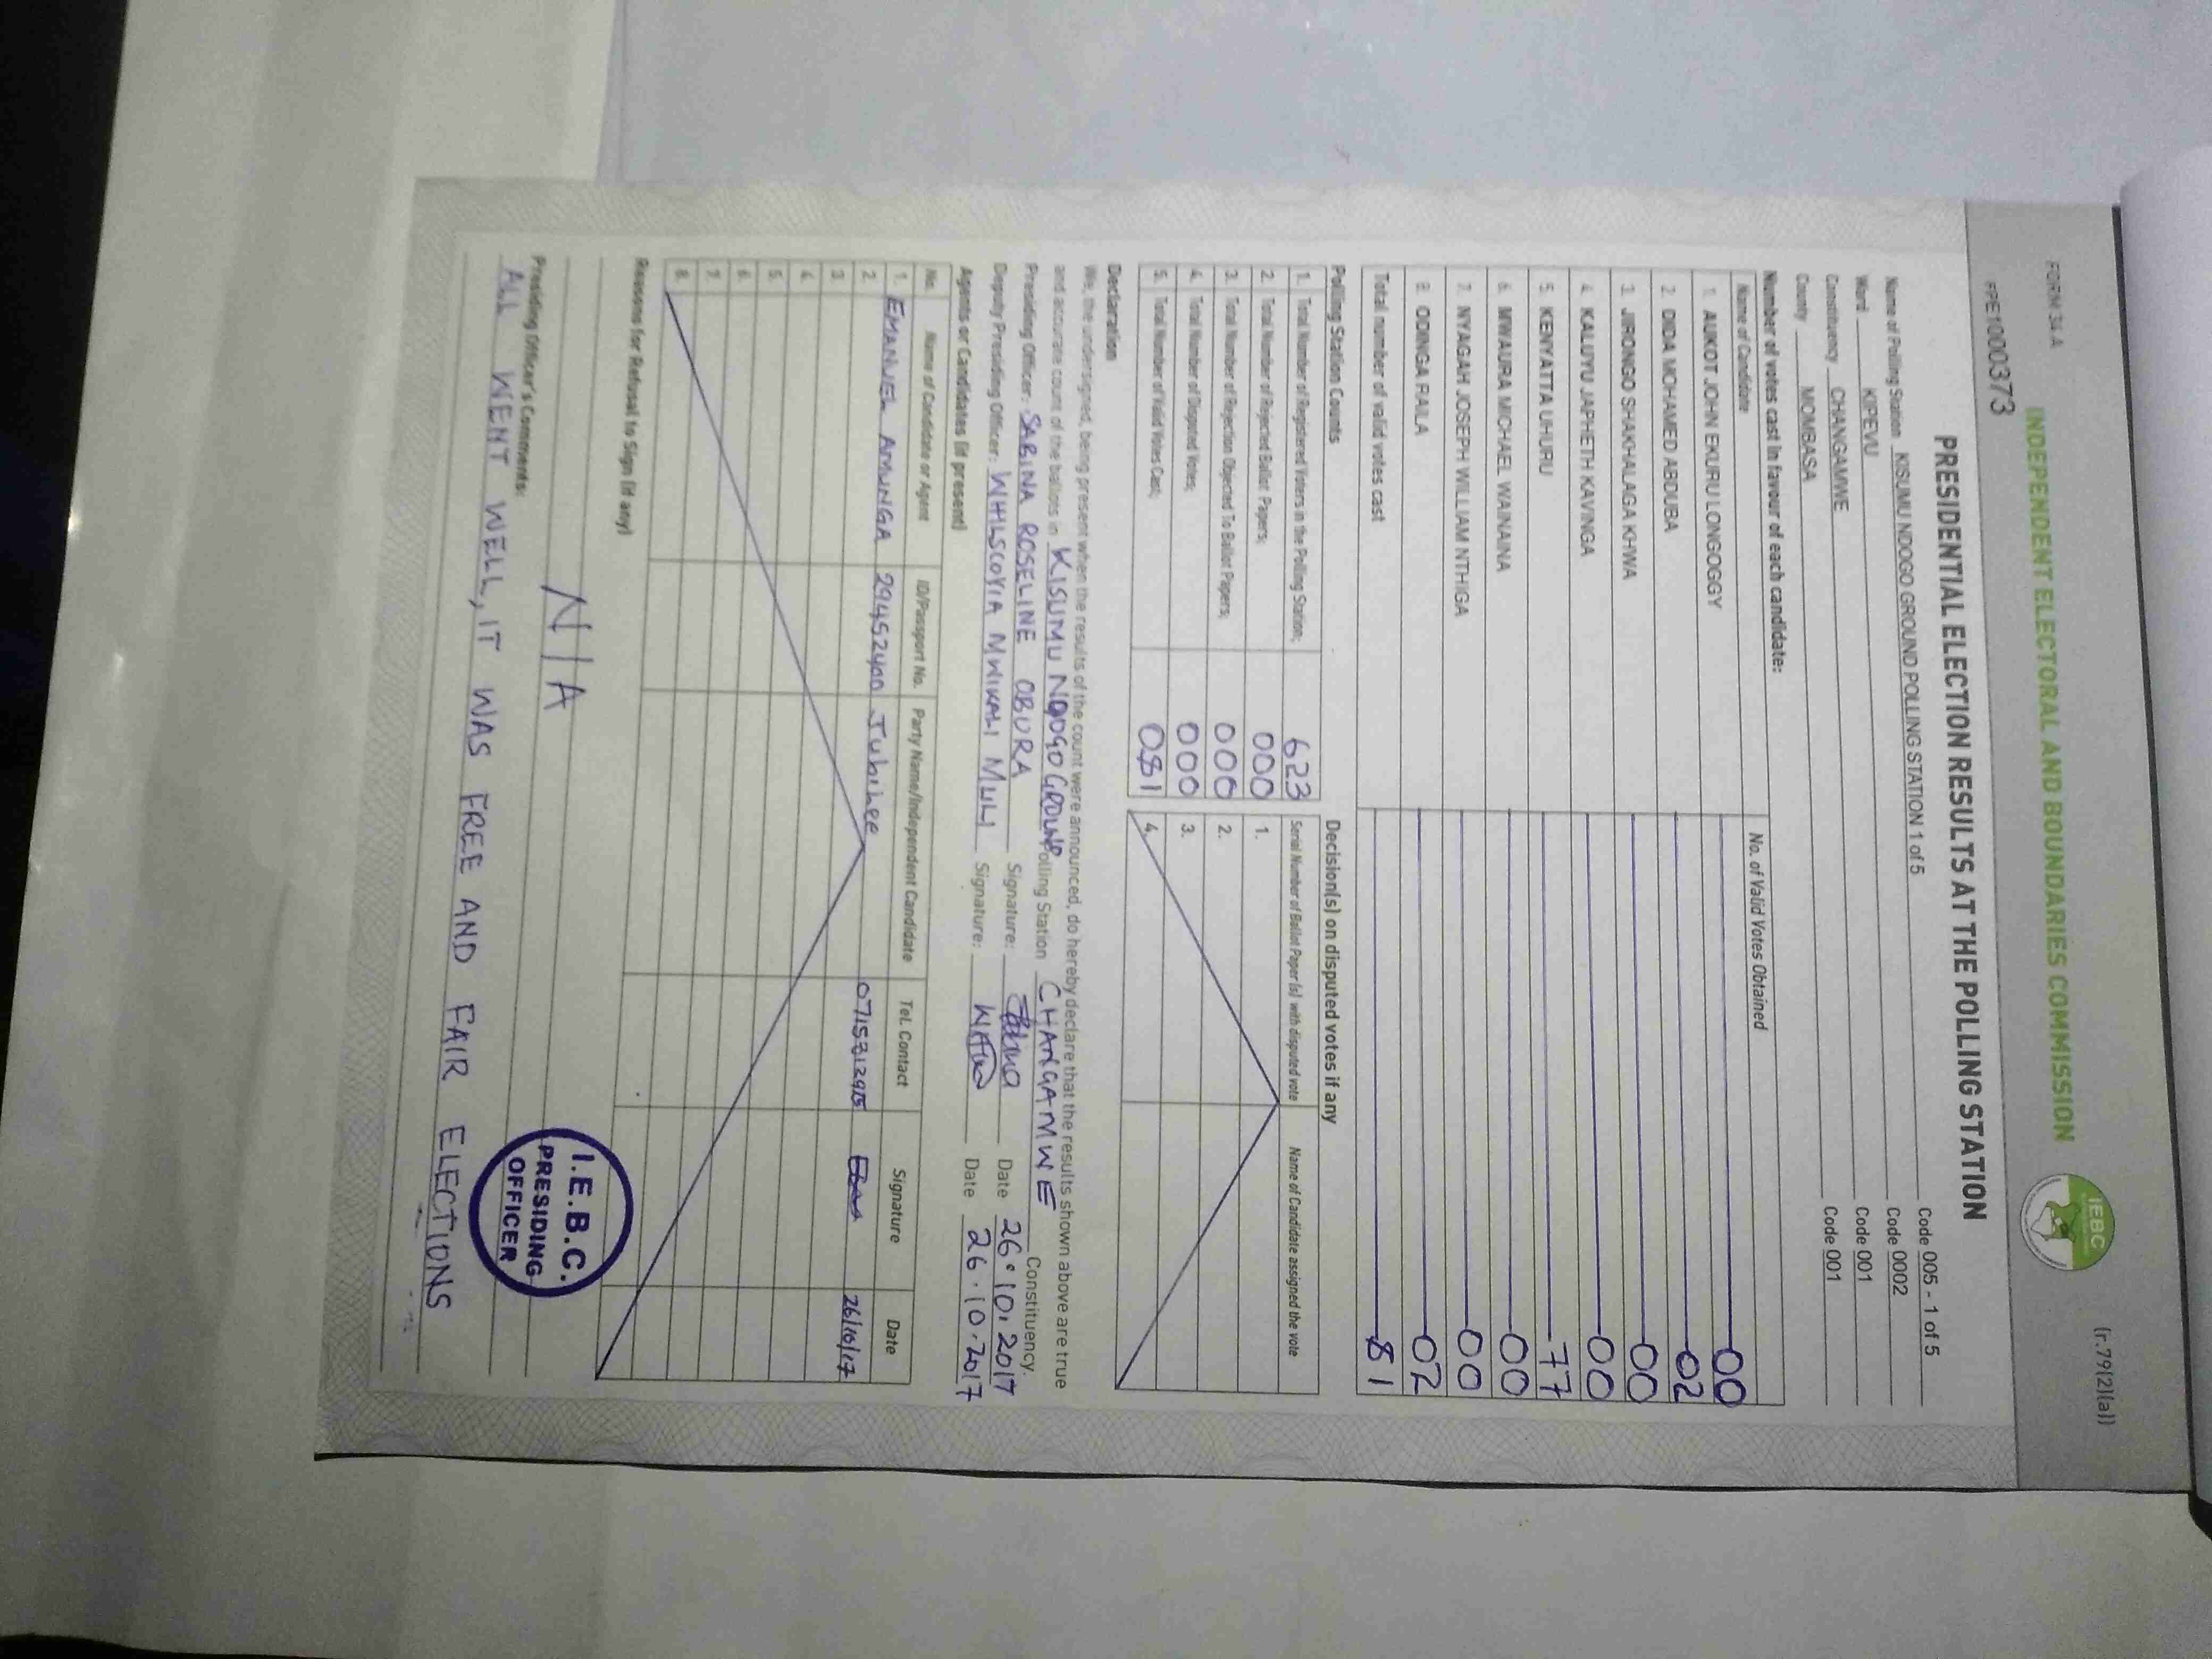 FORM 34 A
(r.79(2)(a))
INDEPENDENT ELECTORAL AND BOUNDARIES COMMISSION
IEBC
FPE100373
PRESIDENTIAL ELECTION RESULTS AT THE POLLING STATION
Name of Polling Station KISUMU NDOGO GROUND POLLING STATION 1 of 5 Code 005 - 1 of 5
Ward KIPEVU Code 0002
Constituency CHANGAMWE Code 001
County MOMBASA Code 001
Number of votes cast in favour of each candidate:
Name of Candidate No. of Valid Votes Obtained
1. AUKOT JOHN EKURU LONGOGGY 00
2. DIDA MOHAMED ABDUBA 02
3. JIRONGO SHAKHALAGA KHWA 00
4. KALUYU JAPHETH KAVINGA 00
5. KENYATTA UHURU 77
6. MWAURA MICHAEL WAINAINA 00
7. NYAGAH JOSEPH WILLIAM NTHIGA 00
8. ODINGA RAILA 02
Total number of valid votes cast 81
Polling Station Counts Decision(s) on disputed votes if any
Serial Number of Ballot Paper (s) with disputed vote Name of Candidate assigned the vote
1. Total Number of Registered Voters in the Polling Station; 623
2. Total Number of Rejected Ballot Papers; 000 1.
3. Total Number of Rejection Objected To Ballot Papers; 000 2.
4. Total Number of Disputed Votes; 000 3.
5. Total Number of Valid Votes Cast; 081 4.
Declaration
We, the undersigned, being present when the results of the count were announced, do hereby declare that the results shown above are true
and accurate count of the ballots in KISUMU NDOGO GROUND Polling Station CHANGAMWE Constituency.
Presiding Officer: SABINA ROSELINE OBURA Signature: Date 26.10.2017
Deputy Presiding Officer: MWIKALI MULI Signature: Date 26.10.2017
Agents or Candidates (if present)
No. Name of Candidate or Agent ID/Passport No. Party Name/Independent Candidate Tel. Contact Signature Date
1. EMANUEL AMUNGA 29452400 Jubilee 26/10/17
2.
3.
4.
5.
6.
7.
8.
Reasons for Refusal to Sign (if any)
N/A
Presiding Officer's Comments:
ALL WENT WELL, IT WAS FREE AND FAIR ELECTIONS
I.E.B.C.
PRESIDING
OFFICER